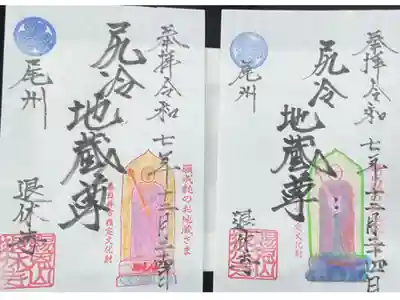 奉拝 令和七年十二月二十四日
願成就のお地蔵さま
尻冷
地蔵尊
春日井市指定文化財
尾州
退休寺
奉拝 令和七年十二月二十四日
尻冷
地蔵尊
定文化財
尾州
退休寺